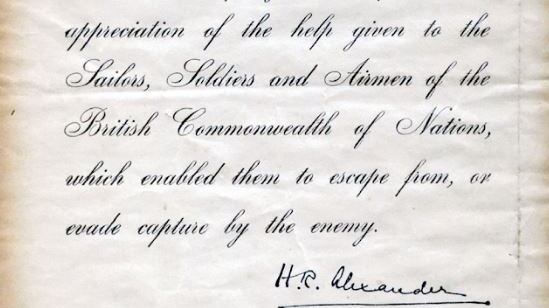 appreciation of the help given to the
Sailors, Soldiers and Airmen of the
British Commonwealth of Nations,
which enabled them to escape from, or
evade capture by the enemy.
H.R. Alexander